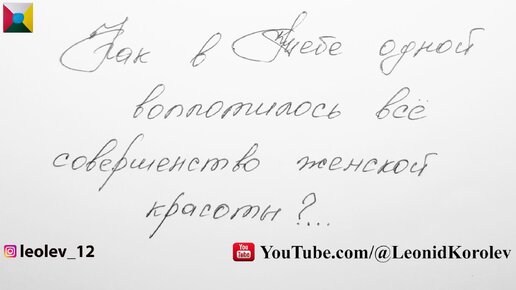 Как в Тебе одной
воплотилось всё
совершенство женской
красоты?...
leolev_12
You Tube YouTube.com/@LeonidKorolev